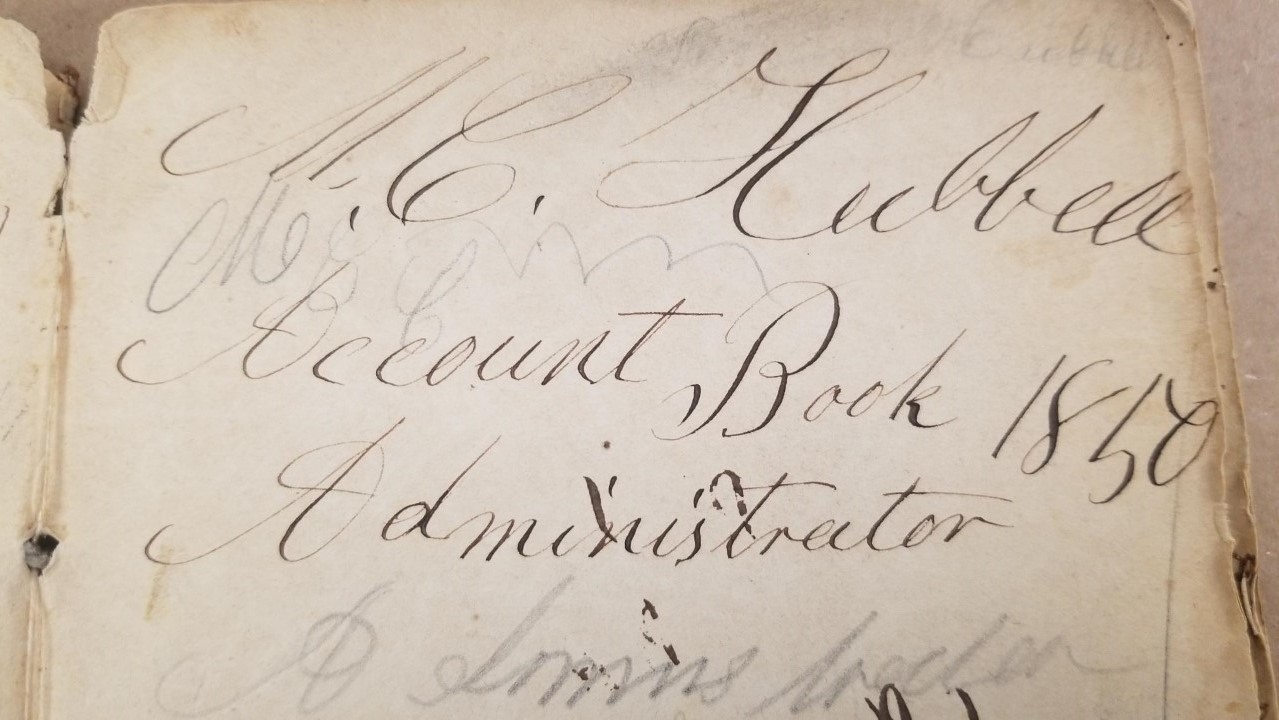 M. C. Hubbell
Account Book 1850
Administrator